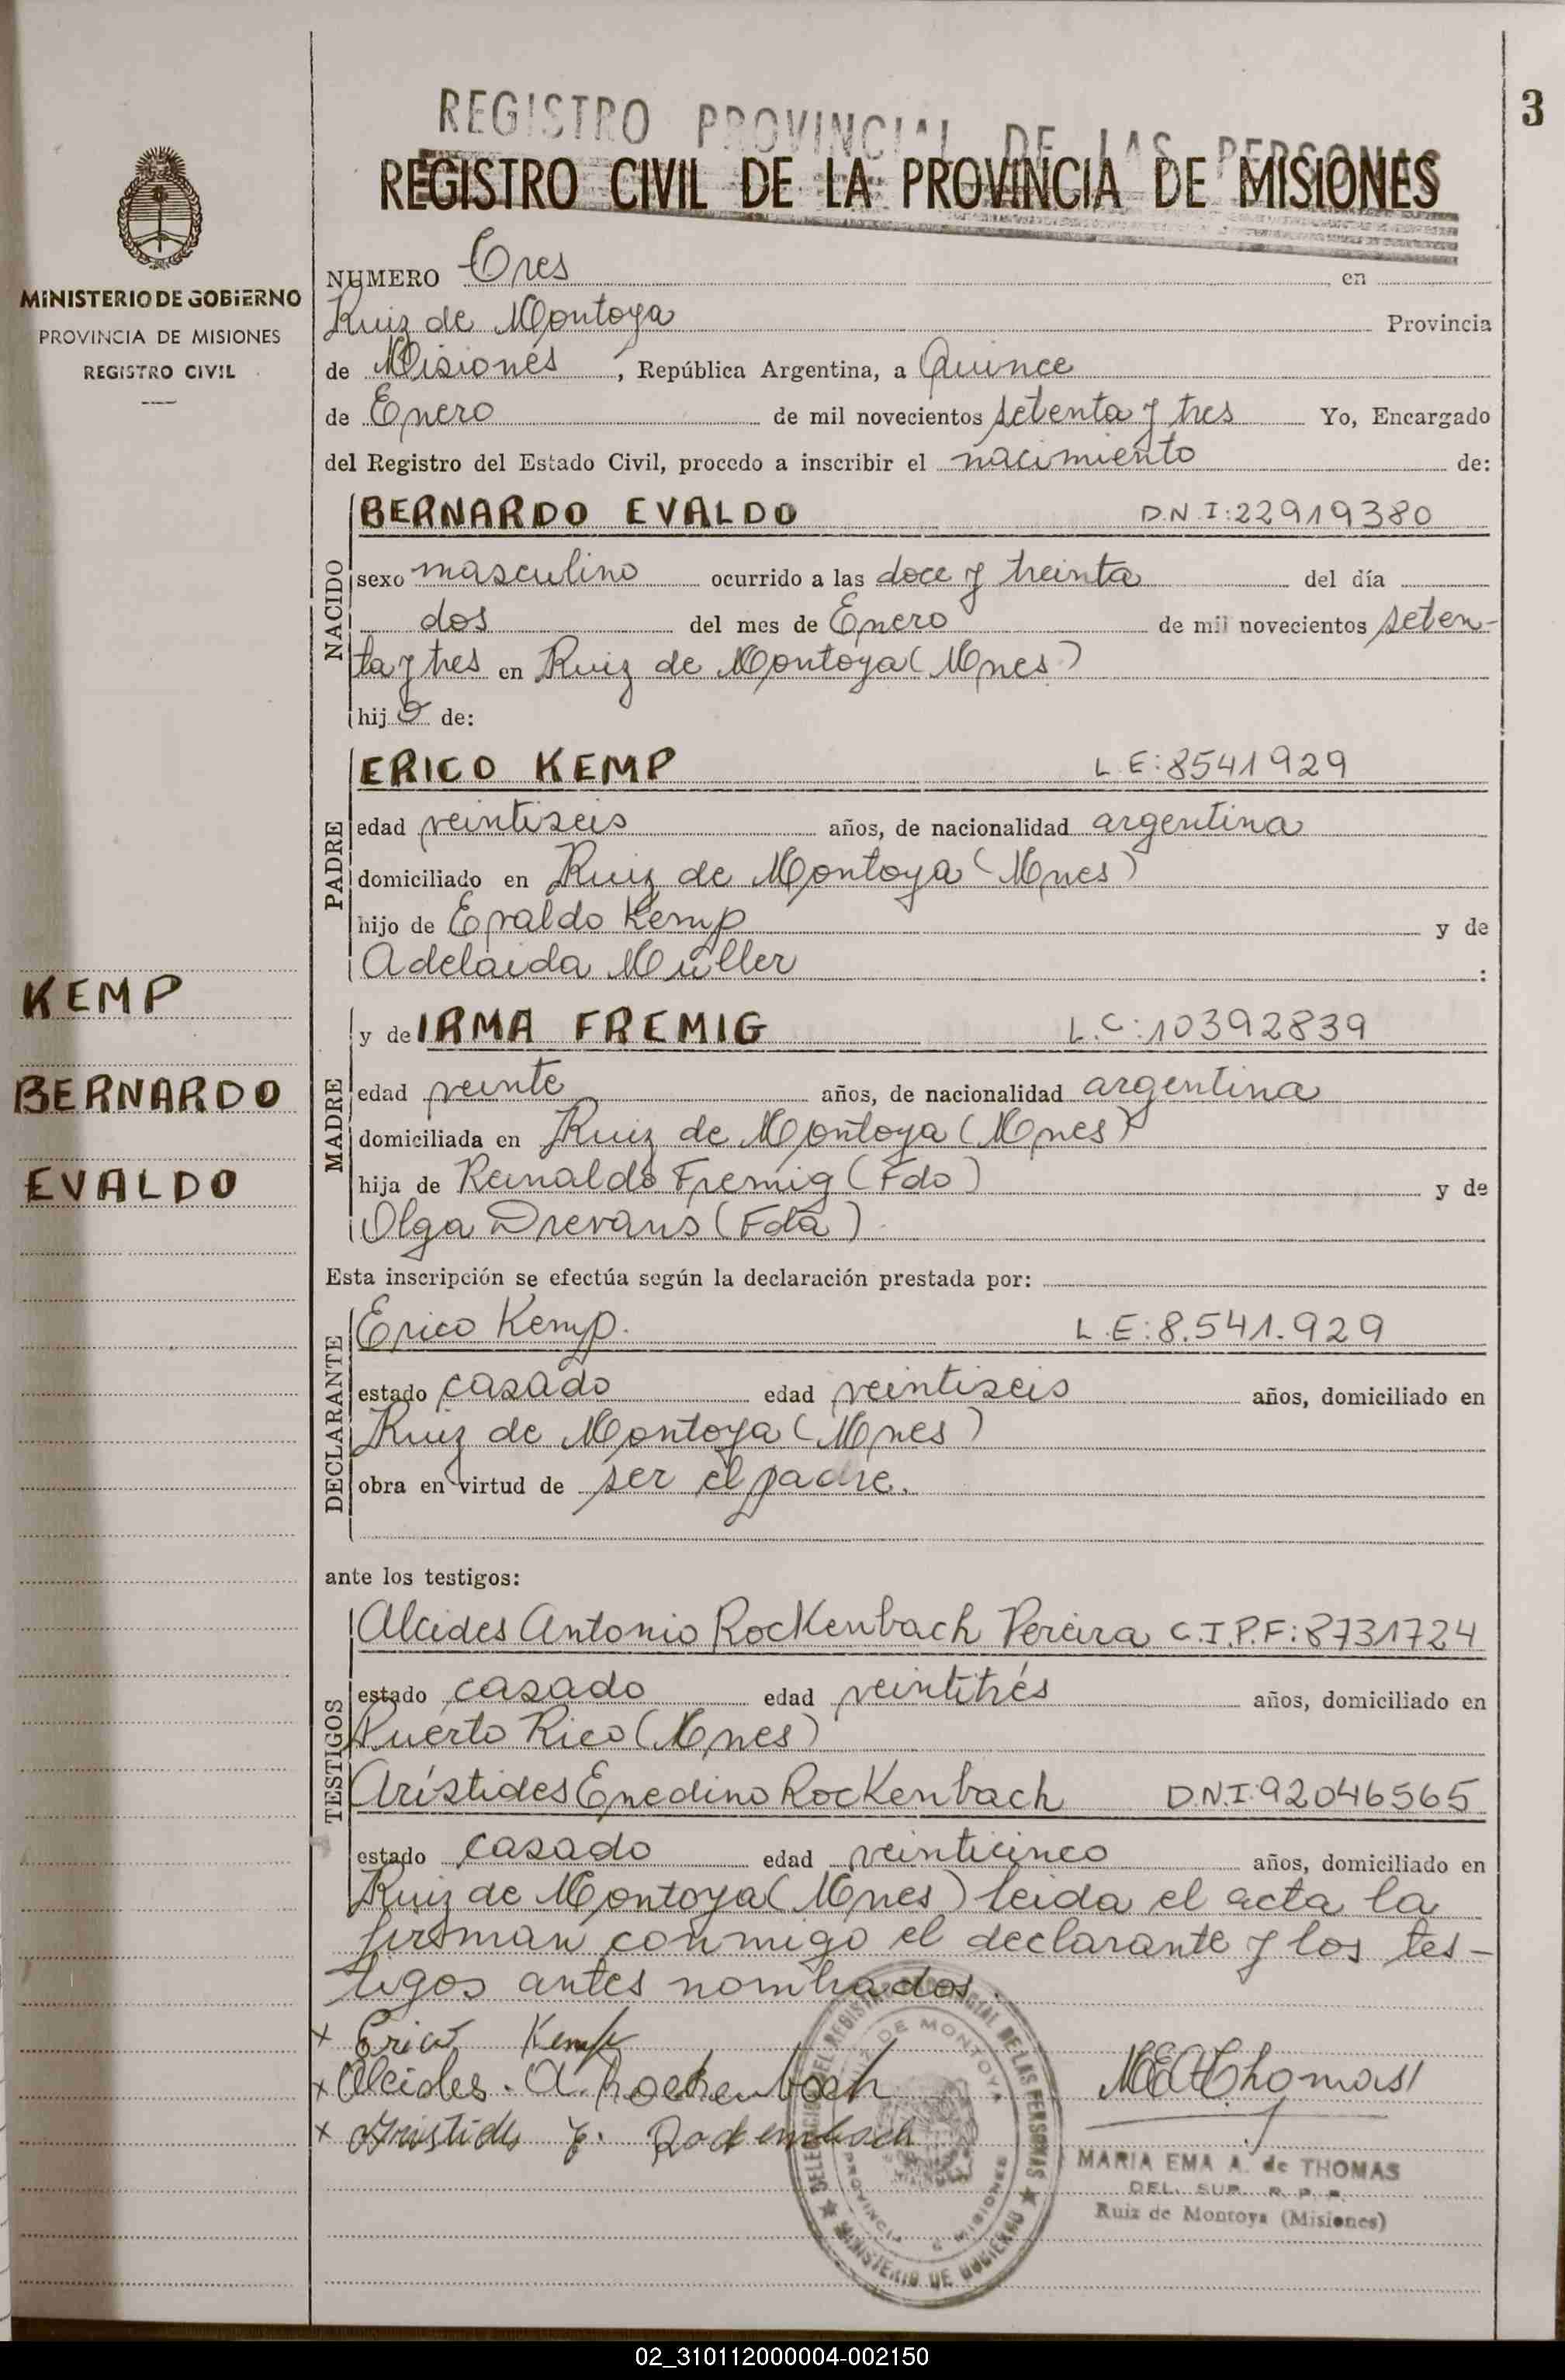 3
REGISTRO PROVINCIAL DE LAS PERSONAS
REGISTRO CIVIL DE LA PROVINCIA DE MISIONES
MINISTERIO DE GOBIERNO
PROVINCIA DE MISIONES
REGISTRO CIVIL
NUMERO Tres en
Ruiz de Montoya Provincia
de Misiones, República Argentina, a Quince
de Enero de mil novecientos setenta y tres Yo, Encargado
del Registro del Estado Civil, procedo a inscribir el nacimiento de:
NACIDO
BERNARDO EVALDO D.N.I:22919380
sexo masculino ocurrido a las doce y treinta del día
dos del mes de Enero de mil novecientos seten-
ta y tres en Ruiz de Montoya (Mnes)
hijo de:
PADRE
ERICO KEMP L.E:8541929
edad veintiseis años, de nacionalidad argentina
domiciliado en Ruiz de Montoya (Mnes)
hijo de Evaldo Kemp y de
Adelaida Müller :
KEMP
BERNARDO
EVALDO
MADRE
y de IRMA FREMIG L.C:10392839
edad veinte años, de nacionalidad argentina
domiciliada en Ruiz de Montoya (Mnes)
hija de Reinaldo Fremig (Fdo) y de
Olga Drevans (Fda)
Esta inscripción se efectúa según la declaración prestada por:
DECLARANTE
Erico Kemp. L.E:8.541.929
estado casado edad veintiseis años, domiciliado en
Ruiz de Montoya (Mnes)
obra en virtud de ser el padre.
ante los testigos:
TESTIGOS
Alcides Antonio Rockenbach Pereira C.I.P.F:8731724
estado casado edad veintitrés años, domiciliado en
Puerto Rico (Mnes)
Arístides Enedino Rockenbach D.N.I:92046565
estado casado edad veinticinco años, domiciliado en
Ruiz de Montoya (Mnes) leida el acta la
firman conmigo el declarante y los tes-
tigos antes nombrados.
x Erico Kemp
x Alcides. A. Rockenbach
x Aristides E. Rockenbach
MEAThomas
DELEGACION DEL REGISTRO PROVINCIAL DE LAS PERSONAS
RUIZ DE MONTOYA
PROVINCIA MISIONES
MINISTERIO DE GOBIERNO
MARIA EMA A. de THOMAS
DEL. SUP. R. P. P.
Ruiz de Montoya (Misiones)
02_310112000004-002150